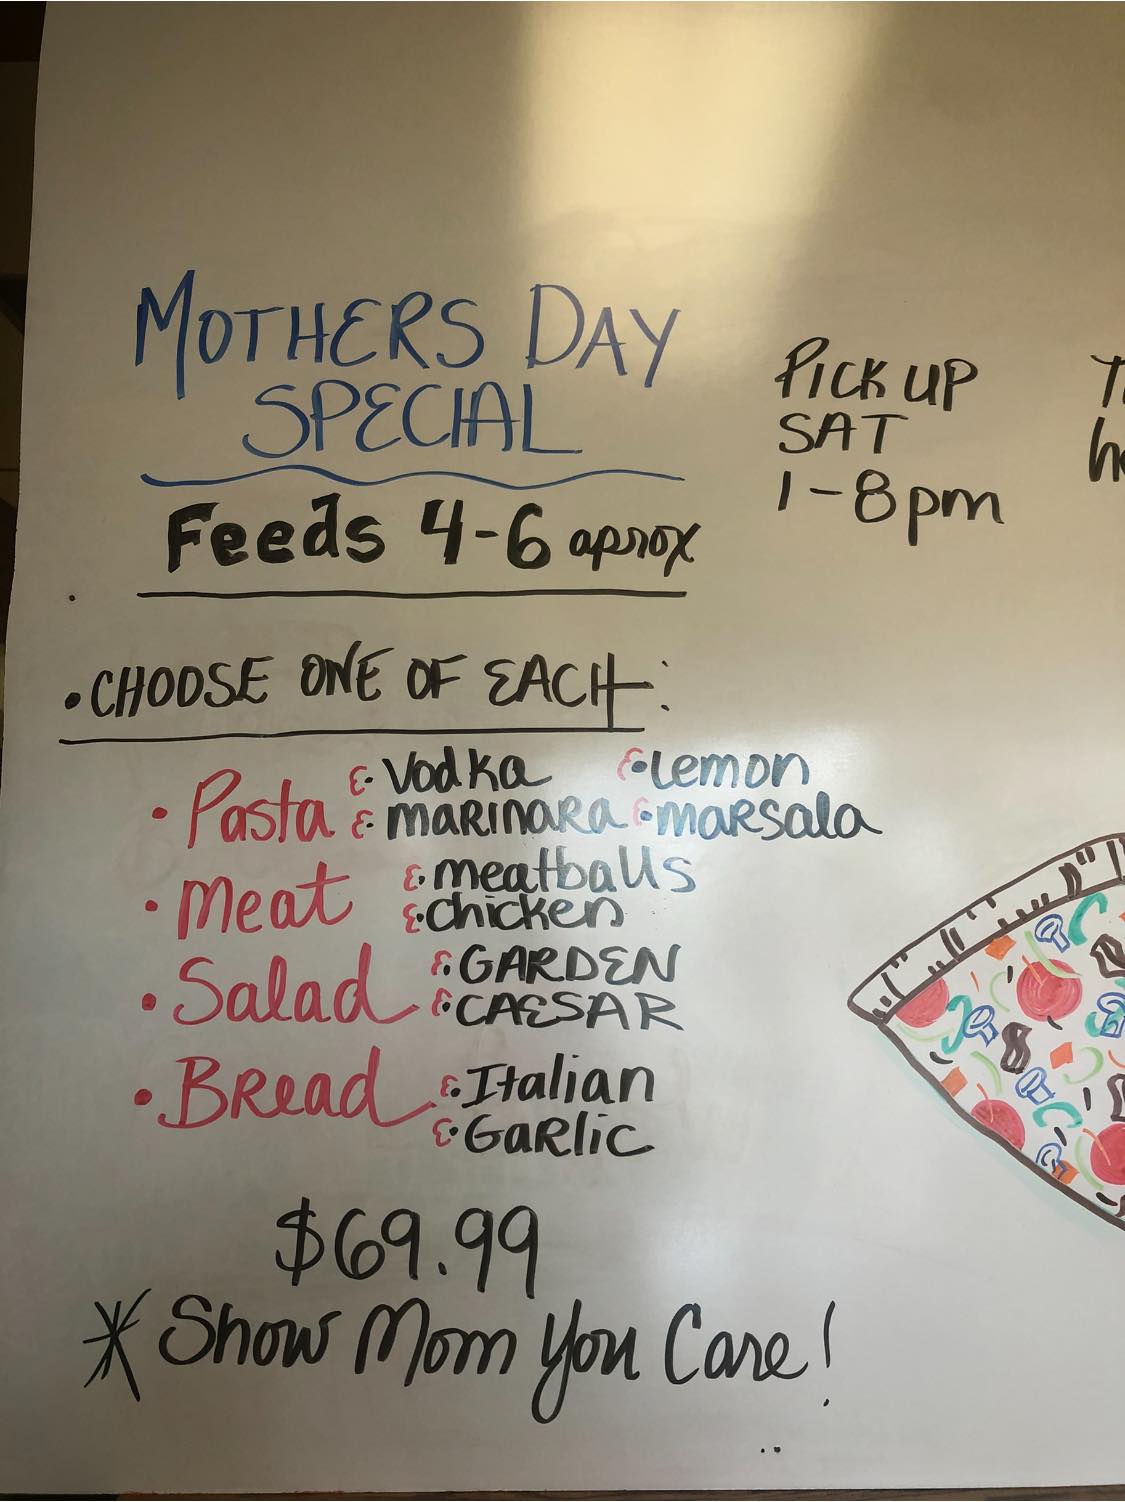 MOTHERS DAY
SPECIAL
Feeds 4-6 aprox
PICK UP
SAT
1-8pm
• CHOOSE ONE OF EACH:
• Pasta
• Vodka
• Lemon
• MARINARA
• MARSala
• Meat
• meatballs
• chicken
• Salad
• GARDEN
• CAESAR
• BRead
• Italian
• GaRlic
$69.99
* Show Mom You Care!